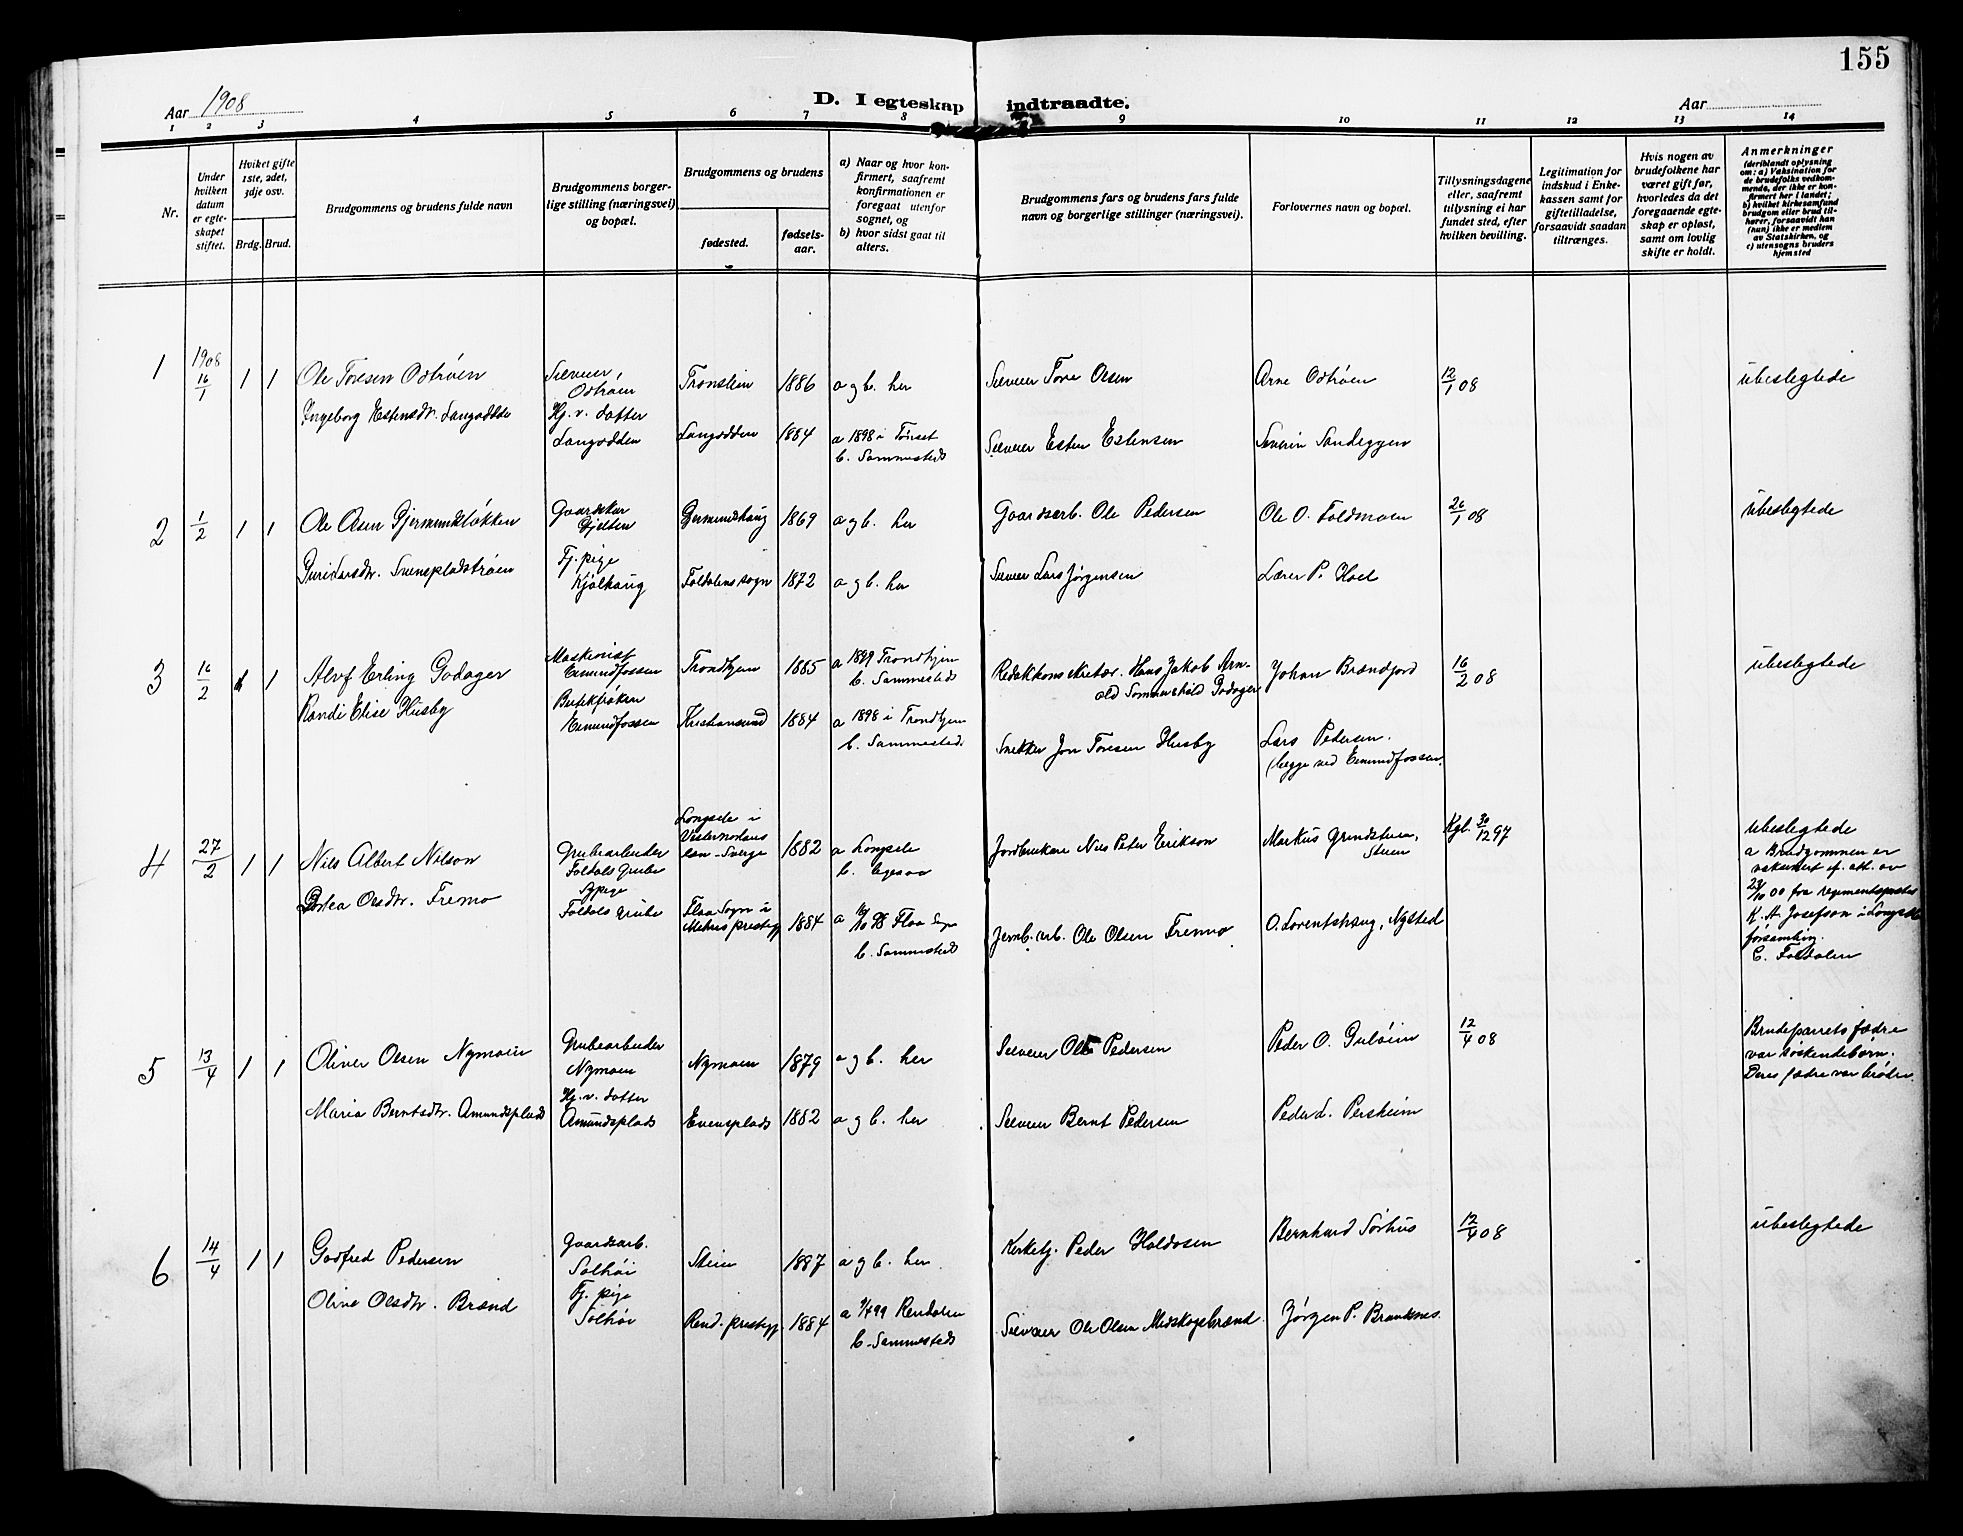 155
Aar 1908
D. I egteskap indtraadte.
Aar
1 2 3 4 5 6 7 8 9 10 11 12 13 14
Nr.
Under hvilken datum er egteskapet stiftet.
Hviket gifte 1ste, 2det, 3dje osv.
Brdg. Brud.
Brudgommens og brudens fulde navn
Brudgommens borgerlige stilling (næringsvei) og bopæl.
Brudgommens og brudens
fødested.
fødselsaar.
a) Naar og hvor konfirmert, saafremt konfirmationen er foregaat utenfor sognet, og
b) hvor sidst gaat til alters.
Brudgommens fars og brudens fars fulde navn og borgerlige stillinger (næringsvei).
Forlovernes navn og bopæl.
Tillysningsdagene eller, saafremt tillysning ei har fundet sted, efter hvilken bevilling.
Legitimation for indskud i Enkekassen samt for giftetilladelse, forsaavidt saadan tiltrænges.
Hvis nogen av brudefolkene har været gift før, hvorledes da det foregaaende egteskap er opløst, samt om lovlig skifte er holdt.
Anmerkninger
(deriblandt oplysning om: a) Vaksination for de brudefolks vedkommende, der ikke er konfirmert her i landet; b) hvilket kirkesamfund brudgom eller brud tilhører, forsaavidt han (hun) ikke er medlem av Statskirken, og c) utensogns bruders hjemsted
1 1908 16/1 1 1 Ole Toresen Odtrøen
Selveier, Odtrøen
Tronslien 1886 a og b. her
Selveier Tore Olsen
Arne Odtrøen
12/1 08
ubeslegtede
Ingeborg Estensdtr. Langodden
Hj. v. datter Langodden
Langodden 1884 a 1898 i Tønset
b. Sammesteds
Selveier Esten Estensen
Severin Sandeggen
2 1/2 1 1 Ole Olsen Gjermundsløkken
Gaardskar Gjelten
Gjermundshaug 1869 a og b. her
Gaardsarb. Ole Pedersen
Ole O. Foldmoen
26/1 08
ubeslegtede
Guri Larsdtr. Svenspladstrøen
Tj. pige Kjølhaug
Foldalens sogn 1872 a og b. her
Selveier Lars Jørgensen
Lærer P. Hoel
3 16/2 1 1 Alvf Erling Godager
Maskinist Eimundfossen
Trondhjem 1885 a 1899 Trondhjem
b. Sammesteds
Redaktionssekretær. Hans Jakob Arnold Godager
Johan Brændjord
16/2 08
ubeslegtede
Randi Elise Husby
Butikfrøken Eimundfossen
Kristiansund 1884 a 1898 i Trondhjem
b. Sammesteds
Snekker Jon Toresen Husby
Lars Pedersen.
(begge ved Eimundfossen.
4 27/2 1 1 Nils Albert Nilson
Grubearbeider Foldals Grube
Longsele i Vesternorlands län - Sverge 1882 a Longsele
b. ogsaa
Jordbrukare Nils Peter Erikson
Markus Grindstuen, Steien
Kgl. 30/12 97
ubeslegtede
a Brudgommen er vaksinert ef. att. av
29/10 00 fra regimentspastor
K. A. Josefson i Longsele
församling.
C. Foldalen
Petea Olsdtr. Fremo
Sypige Foldals grube
Flaa Sogn i Melhus prestegj 1884 a 16/10 98 Flaa Sogn
b. Sammesteds
Jernb. arb. Ole Olsen Fremo
O. Lorentshaug, Nysted
5 13/4 1 1 Oliver Olsen Nymoen
Grubearbeider Nymoen
Nymoen 1879 a og b. her
Selveier Ole Pedersen
Peder O. Guløien
12/4 08
Brudeparrets fædre
var søskendebørn.
Deres fædre var brødre.
Maria Berntsdtr. Amundsplads
Hj. v. datter Amundsplads
Evensplads 1882 a og b. her
Selveier Bernt Pedersen
Peder L. Persheim
6 14/4 1 1 Godfred Pedersen
Gaardsarb. Solhøi
Steien 1887 a og b. her
Kirketj. Peder Haldosen
Bernhard Sørhus
12/4 08
ubeslegtede
Oline Olsdtr. Brænd
Tj. pige Solhøi
Rend. prestegj. 1884 a 9/4 99 Rendalen
b. Sammesteds
Selveier Ole Olsen Midskogsbrænd.
Jørgen P. Brandsnes